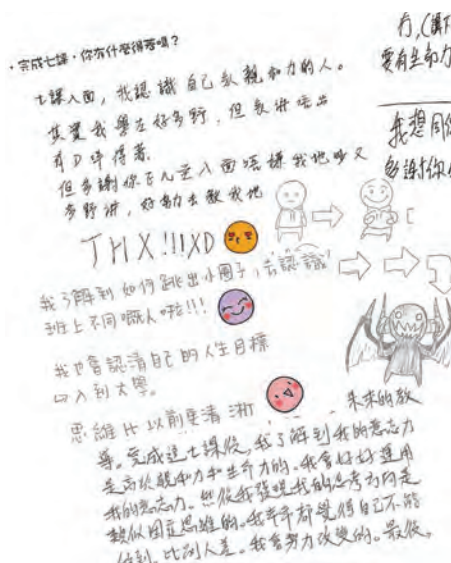 ・完成七課，你有什麼得著？
七課入面，我認識自己教親和力的人。
其實我學左好多野，但我講唔出
有D咩得著。
但多謝你
多野講，好努力去教我地
THX!!!XD
我了解到如何跳出小圈子，去認識
班上不同嘅人啦!!!
我也會認清自己的人生目標
入到大學。
思維比以前更清淅
未來的
完成這七課後，我了解到我的意志力
是高於親和力和生命力的。我會好好運用
我的意志力。然後我發現我的思考方向是
類似固定思維的。我常常都覺得自己不能
做到，比別人差。我會努力改變的。最後，
我想同你
多謝你
要有生命力